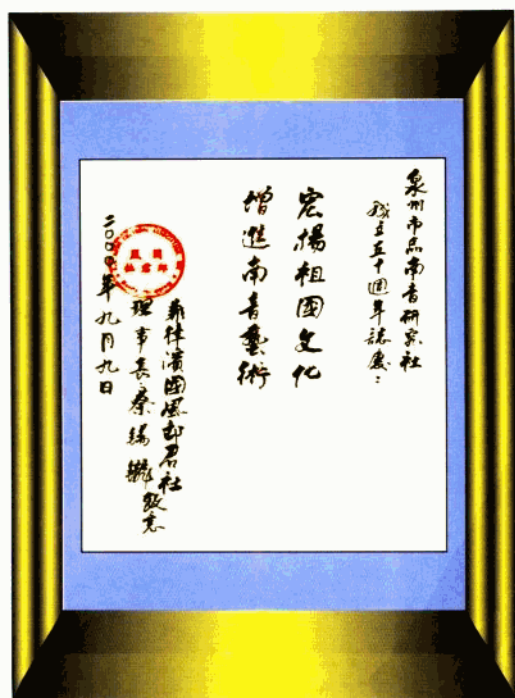 泉州市南音研究社
成立五十週年誌慶：
宏揚祖國文化
增進南音藝術
菲律濱國風郎君社
理事長 蔡 敬意
二〇〇〇年九月九日